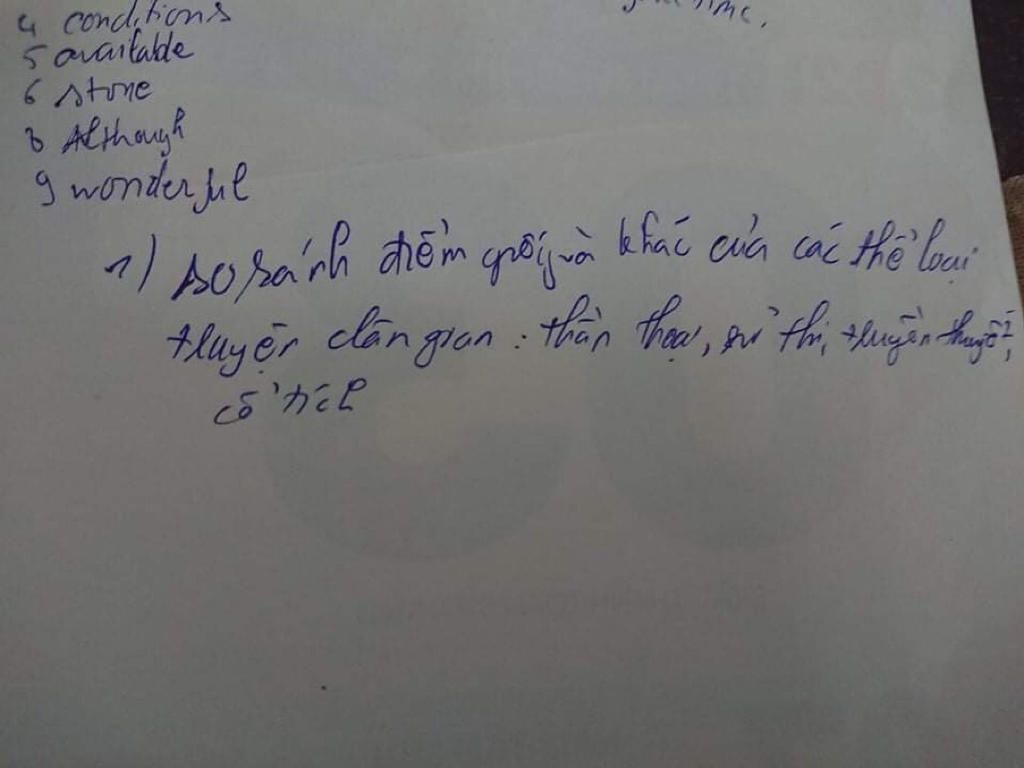 4 conditions
5 available
6 stone
8 Although
9 wonderful
1) so sánh điểm giống và khác của các thể loại
truyện dân gian : thần thoại, sử thi, truyền thuyết,
cổ tích